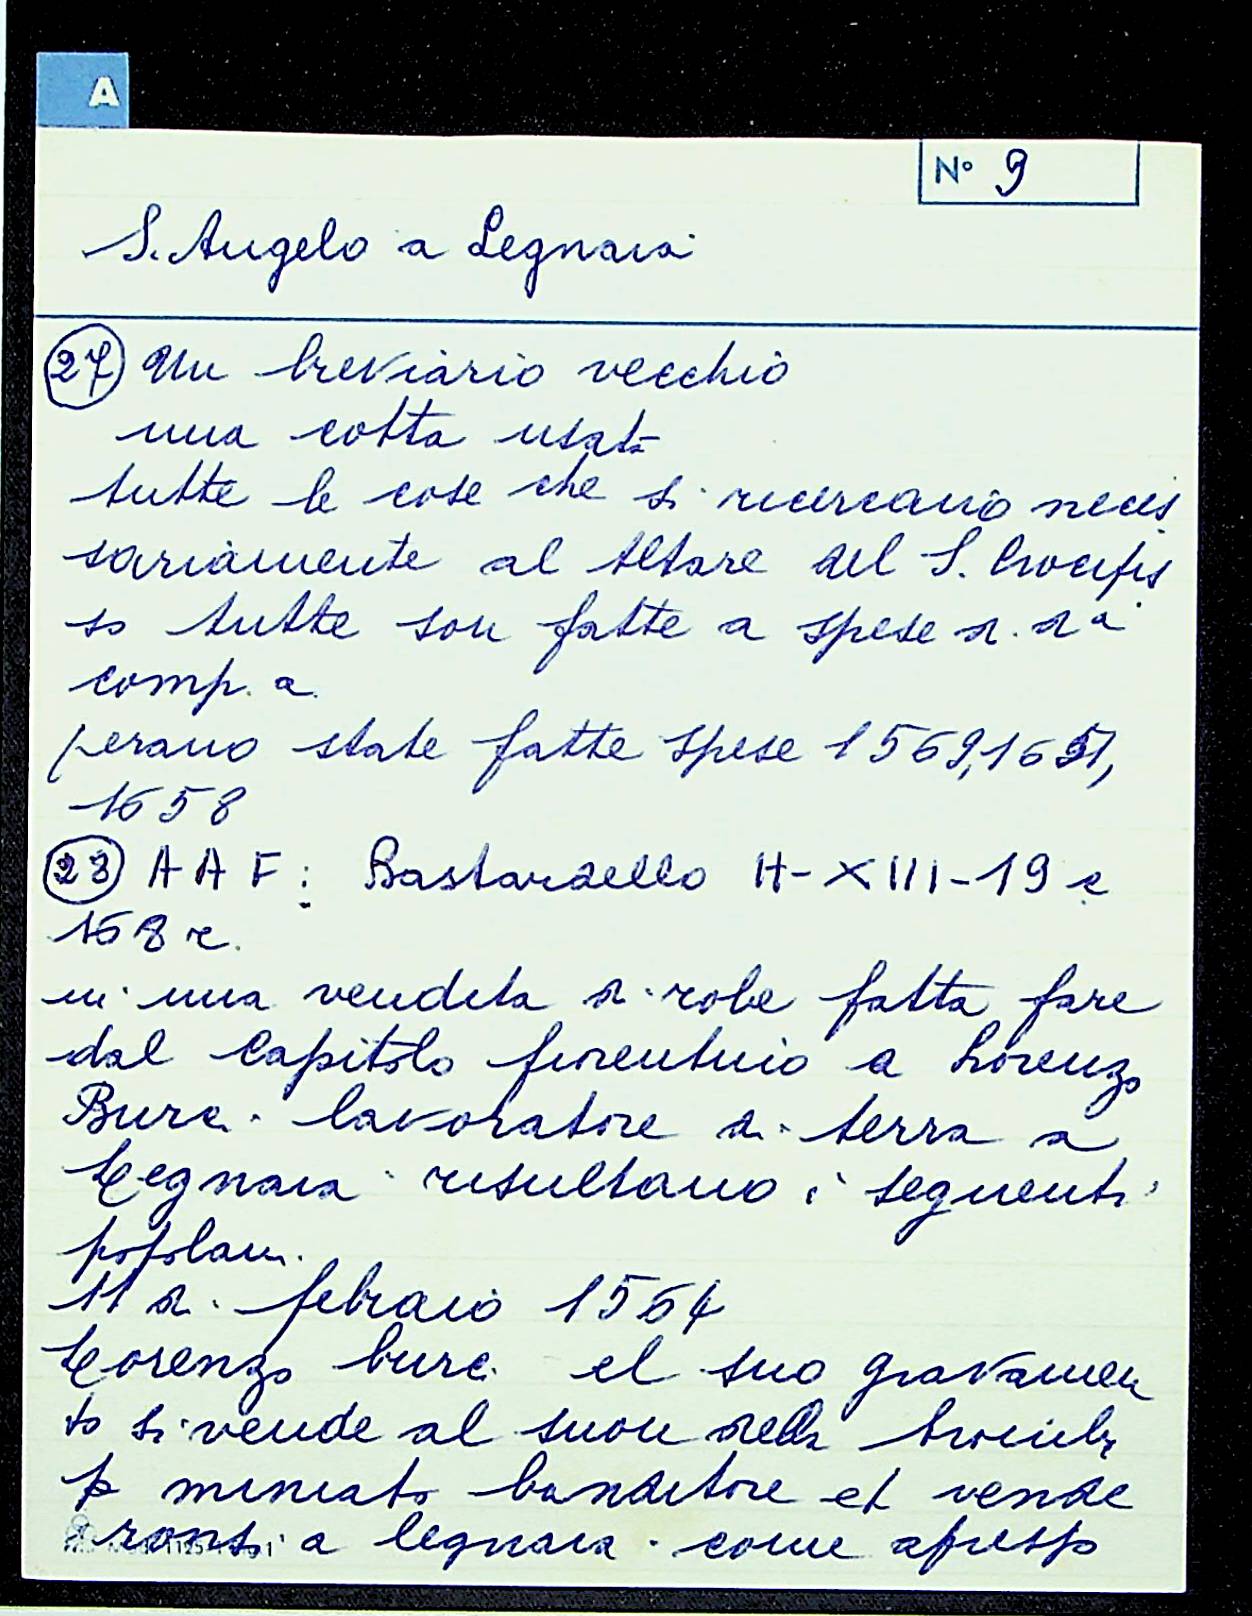 A
N° 9
S. Angelo a Legnaia
27 Un breviario vecchio
una cotta usata
tutte le cose che si ricercano neces
sariamente al Altare del S. Crocifis
so tutte son fatte a spese d. da
comp. a.
perano state fatte spese 1569, 1651,
1658
28 A A F : Bastardello H-XIII-19 c
168 r.
in una vendita di robe fatta fare
dal Capitolo fiorentino a Lorenzo
Burci lavoratore di terra a
Legnaia risultano i seguenti
popolani.
11 di febraio 1564
Lorenzo burci el suo gravamen
to si vende al suon della tromba
p miniato banditore et vende
ronsi a legnaia come apresso